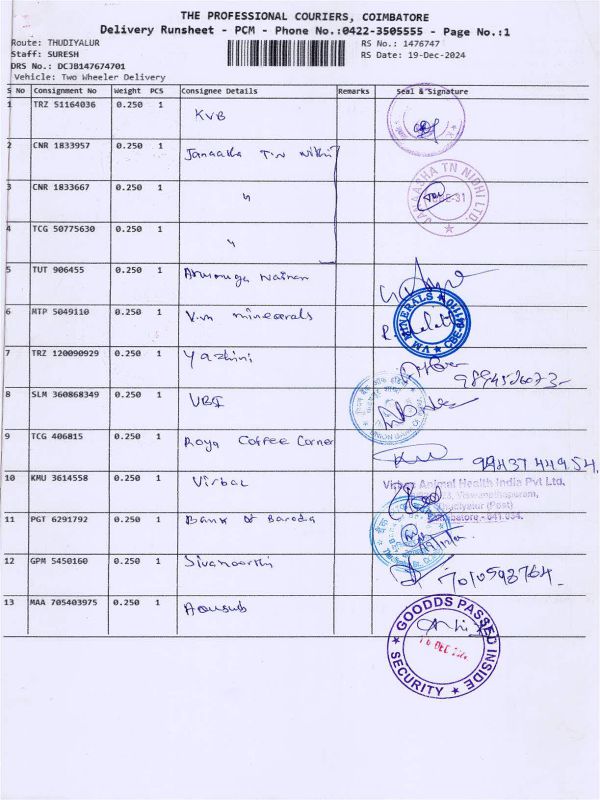 THE PROFESSIONAL COURIERS, COIMBATORE
Delivery Runsheet - PCM - Phone No.:0422-3505555 - Page No.:1
Route: THUDIYALUR
RS No.: 1476747
Staff: SURESH
RS Date: 19-Dec-2024
DRS No.: DCJB147674701
Vehicle: Two Wheeler Delivery
S No Consignment No Weight PCS Consignee Details Remarks Seal & Signature
1 TRZ 51164036 0.250 1 KVB
2 CNR 1833957 0.250 1 TN Nidhi
3 CNR 1833667 0.250 1 "
JANAASHA TN NIDHI LTD.
CBE-31
4 TCG 50775630 0.250 1 "
5 TUT 906455 0.250 1 Arumuga Nainar
6 MTP 5049110 0.250 1 V.M minerals
VM MINERALS
7 TRZ 120090929 0.250 1 Yazhini
8 SLM 360868349 0.250 1 UBI
UNION BANK OF
9 TCG 406815 0.250 1 Roya Coffee Corner
9943744954.
10 KMU 3614558 0.250 1 Virbac
Virbac Animal Health India Pvt Ltd.
Viswanathapuram,
Thudiyalur (Post)
Coimbatore - 641 034.
11 PGT 6291792 0.250 1 Bank of Baroda
12 GPM 5450160 0.250 1 Sivamoorthi
7010593764
13 MAA 705403975 0.250 1
GOODDS PASSED INSIDE
SECURITY